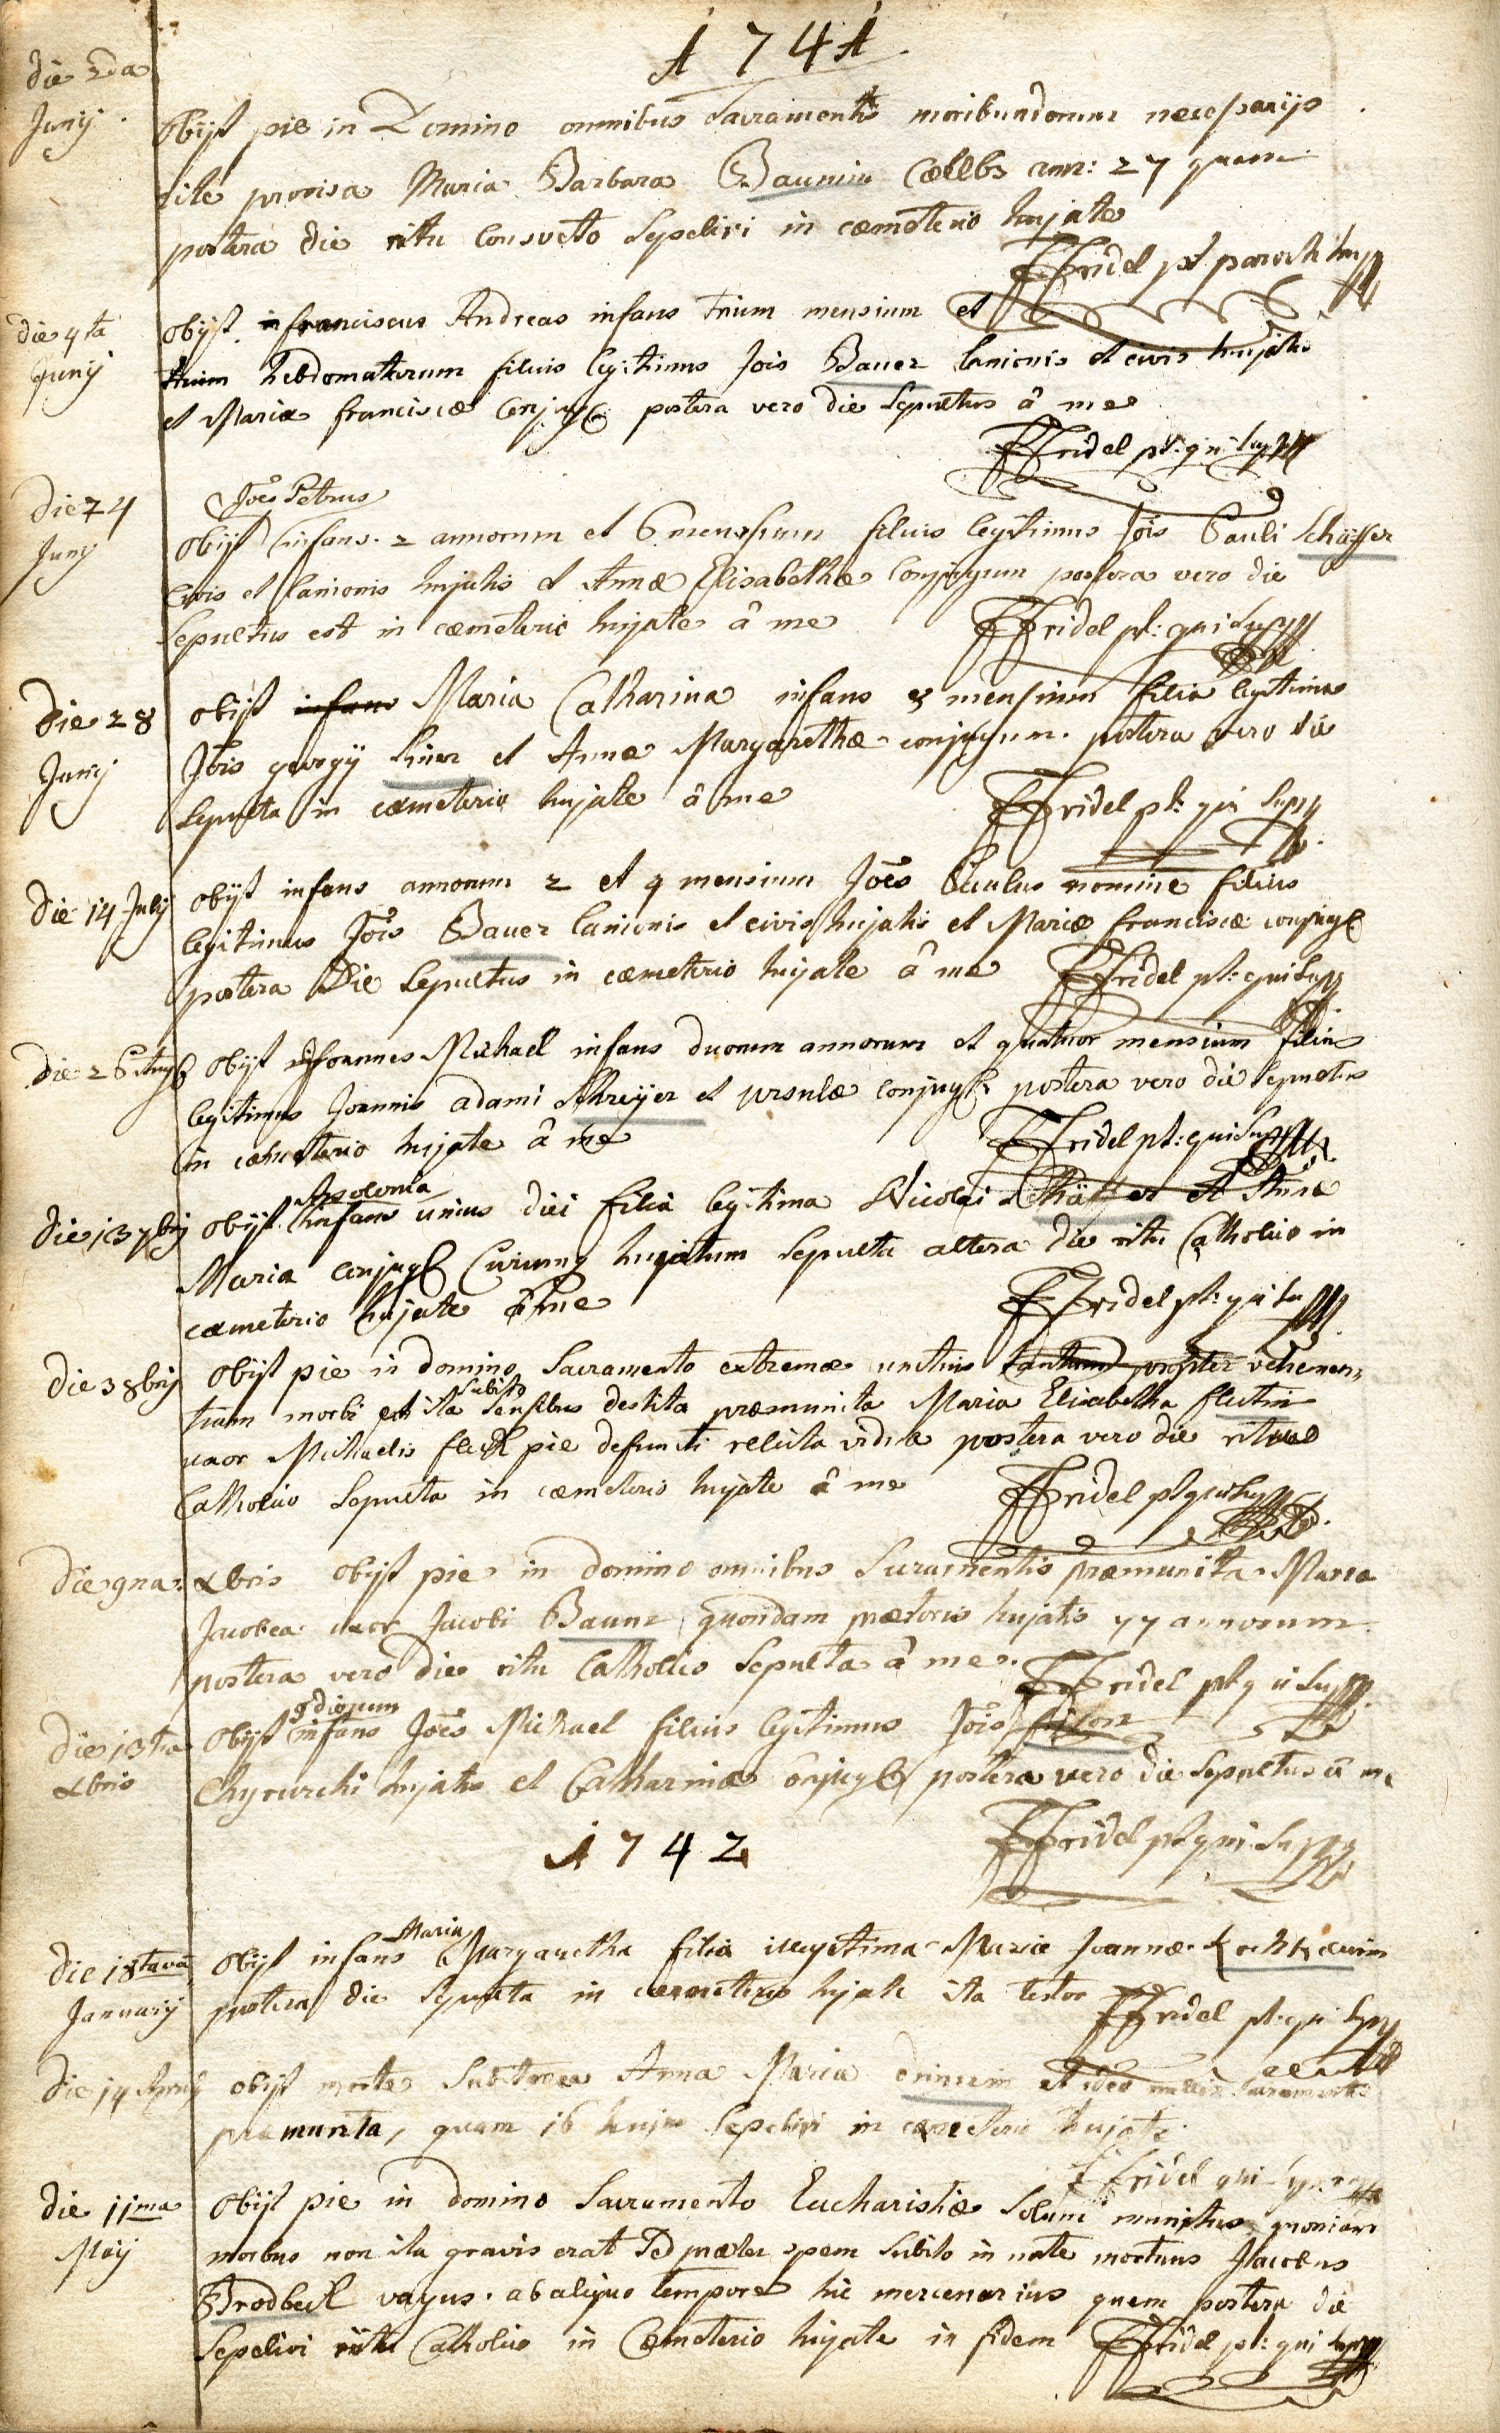 1741
die 2da
Junij
Obijt pie in Domino omnibus Sacramentis moribundorum necessarijs
rite provisa Maria Barbara Baumin Cœlebs ann: 27 quam
postera die ritu Consveto Sepelivi in cœmeterio hujate
FFridel pt parochi
die 4ta
Junij
Obijt franciscus Andreas infans trium mensium et
trium hebdomatarum filius legitimus Jois Bauer lanionis et civis hujatis
et Mariæ franciscæ Conjug postera vero die Sepultus â me
FFridel pt: qui supr
die 24
Junij
Joes Petrus
Obijt infans 2 annorum et 6 menssium filius legitimus Jois Pauli Schäffer
Civis et lanionis hujatis et Annæ Elisabethæ Conjugum postera vero die
Sepultus est in cœmeterio hujate â me
FFridel pt: qui supr
die 28
Junij
obijt infans Maria Catharina infans 3 mensium filia legitima
Jois georgij et Annæ Margarethæ conjugum postera vero die
Sepulta in cœmeterio hujate â me
FFridel pt: qui supr
die 14 Julij
obijt infans annorum 2 et 4 mensium Joes Paulus nomine filius
legitimus Jois Bauer lanionis et civis hujatis et Mariæ franciscæ conjug
postera Die Sepultus in cœmeterio hujate â me
FFridel pt: qui supr
die 26 Aug
Obijt Joannes Michael infans duorum annorum et quatuor mensium filius
legitimus Joannis adami Schreijer et Ursulæ conjug postera vero die Sepultus
in cœmeterio hujate â me
FFridel pt: qui supr
die 13 7bris
Apolonia
Obijt infans unius diei filia legitima Nicolai Schäffer et Annæ
Maria conjug hujatum Sepulta altera die ritu Catholico in
cœmeterio hujate â me
FFridel pt: qui su
die 3 8bris
Obijt pie in domino Sacramento extremæ unctionis tantum propter vehemen
tiam morbi et ita subito Sensibus destita præmunita Maria Elisabetha
uxor Michaelis pie defuncti relicta vidua postera vero die ritu
Catholico Sepulta in cœmeterio hujate â me
FFridel pt qui supr
die 9na Xbris
Obijt pie in domino omnibus Sacramentis præmunita Maria
Jacobea uxor Jacobi Baunz quondam prætoris hujatis 77 annorum
postera vero die ritu Catholico Sepulta â me
FFridel pt qui supr
die 13tia
Xbris
8 dierum
Obijt infans Joes Michael filius legitimus Jois
Chyrurchi hujatis et Catharinæ Conjug postera vero die Sepultus â me
FFridel pt qui supr
1742
die 18tava
Januarij
Maria
Obijt infans Margaretha filia illegitima Maria Joannæ
postera die Sepulta in cœmeterio hujate ita testor
FFridel pt: qui supr
die 14 Aprilis
obijt morte Subitanea Anna Maria et ideo nullis Sacramentis
præmunita, quam 16 hujus Sepelivi in cœmeterio hujate
FFridel qui supr
die 11ma
Maij
Obijt pie in domino Sacramento Eucharistiæ Solum munitus quoniam
morbus non ita gravis erat Sed præter spem Subito in nocte mortuus Jacobus
Brodbeck vagus ab aliquo tempore hic mercenarius quem postera die
Sepelivi ritu Catholico in Cœmeterio hujate in fidem FFridel pt: qui supr